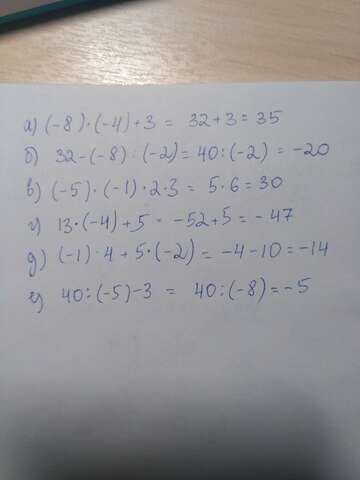 а) (-8)·(-4)+3 = 32+3=35
б) 32-(-8):(-2)=40:(-2) = -20
в) (-5)·(-1)·2·3 = 5·6=30
г) 13·(-4)+5 = -52+5=-47
д) (-1)·4+5·(-2) = -4-10=-14
е) 40:(-5)-3 = 40:(-8)=-5